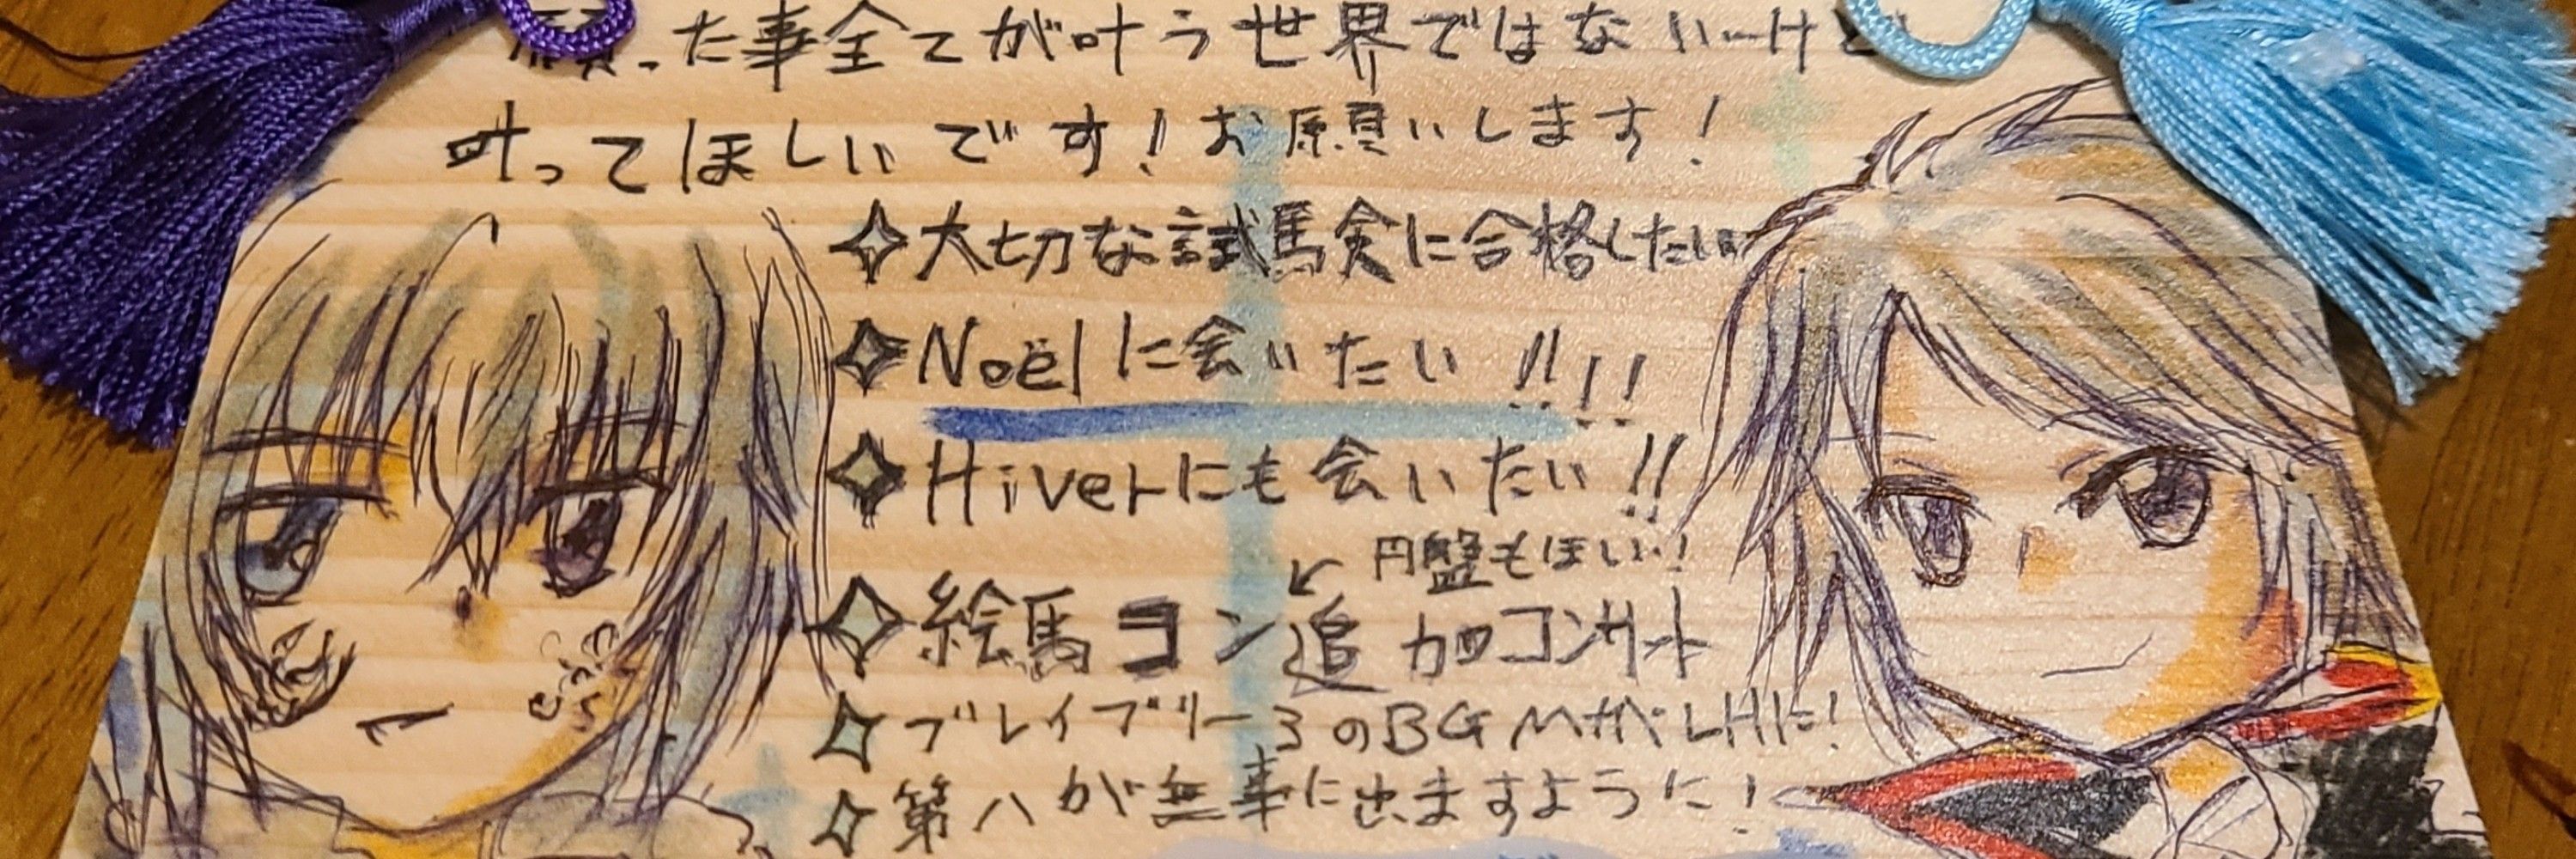 願った事全てが叶う世界ではないけど
叶ってほしいです!お願いします!
大切な試験に合格したい
Noëlに会いたい!!!!
Hiverにも会いたい!!
円盤もほしい!
絵馬コン追加コンサート
ブレイブリー3のBGMがLHに!
第八が無事に出ますように!